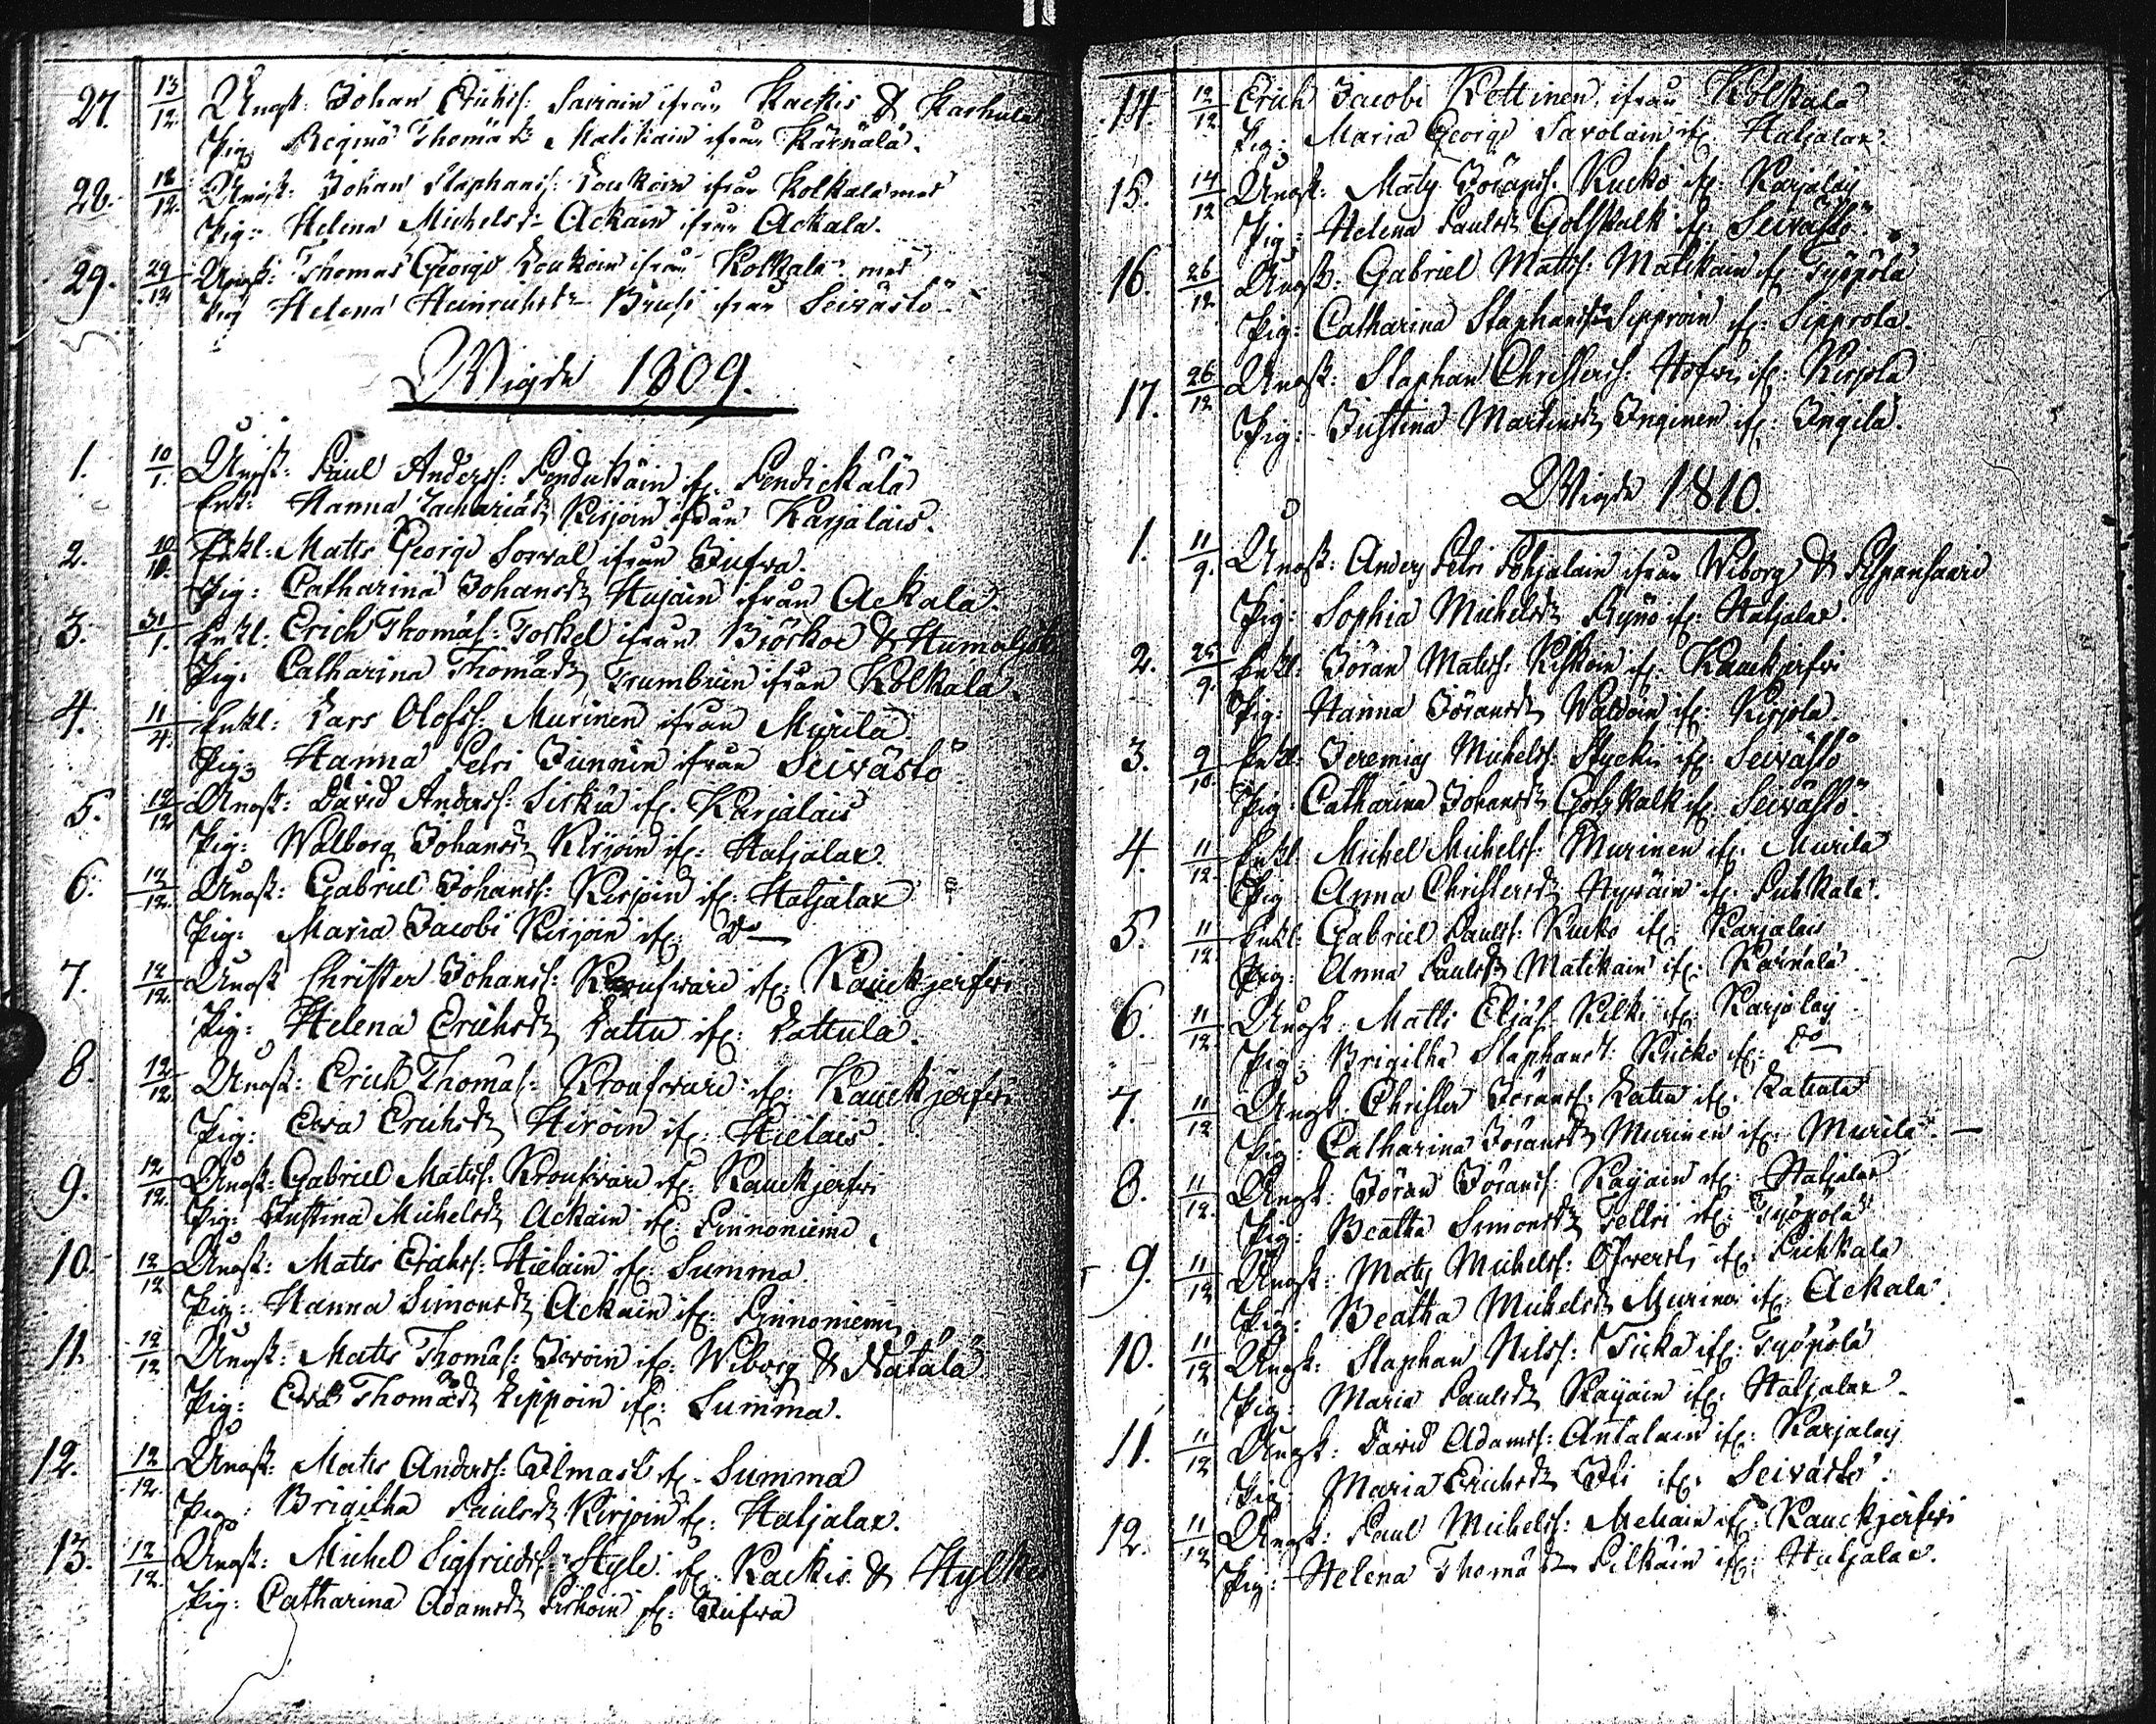 27. 13/12. Ungk: Johan Erichss: Savain ifrån Kackis & Karhula
Pig: Regina Thomæd: Matikain ifrån Kärnälä.
28. 18/12. Ungk: Johan Staphanss: Loukoin ifrån Kolkala med
Pig: Helena Michelsd: Ackain ifrån Ackala.
29. 29/12 Ungk: Thomas Georgs Loukoin ifrån Kolkala med
Pig Helena Heinrichsdr Bruse ifrån Seivästö
Wigde 1809.
1. 10/1. Ungk: Paul Anderss: Pendickäin if: Pendickälä
Enk: Hanna Zachariæd: Kirjoin ifrån Karjalais.
2. 10/10. Enkl: Matts Georgs Sorval ifrån Jufwa.
Pig: Catharina Johansd: Hujain ifrån Ackala.
3. 31/1. Enkl: Erich Thomæs: Torkel ifrån Biörkoe & Humaljok
Pig: Catharina Thomæd: Trumbein ifrån Kolkala.
4. 11/4. Enkl: Lars Olofss: Murinen ifrån Murila
Pig: Hanna Petri Junnin ifrån Seivästö
5. 12/12 Ungk: David Anderss: Siskia if: Karjalais
Pig: Walborg Johansd: Kirjoin if: Haljalax.
6. 12/12. Ungk: Gabriel Johanss: Kirjoin if: Haljalax
Pig: Maria Jacobi Kirjoin if: Do
7. 12/12. Ungk Christer Johanss: Kroufwari if: Kauckjerfwi
Pig: Helena Erichsd: Lattu if: Lattula.
8. 12/12. Ungk: Erich Thomæs: Kroufwari if: Kauckjerfwi
Pig: Ewa Erichsd: Hiroin if: Hielais.
9. 12/12. Ungk: Gabriel Matss: Kroufwari if: Kauckjerfwi
Pig: Justina Michelsd: Ackain if: Pinnoniemi.
10. 12/12 Ungk: Matts Erichss: Hielain if: Summa.
Pig: Hanna Simonsd: Ackain if: Pinnoniemi
11. 12/12 Ungk: Matts Thomæs: Irvoin if: Wiborg & Nätälä
Pig: Ewa Thomæd: Lippoin if: Summa.
12. 12/12. Ungk: Matts Anderss: Ilmast if: Summa
Pig: Brigitha Paulsd: Kirjoin if: Haljalax.
13. 12/12. Ungk: Michel Sigfriedss: Hyle if: Kackis & Hylke
Pig: Catharina Adamsd: Piskoin if: Jufwa
14. 12/12 Erich Jacobi Kottinen ifrån Kolkala
Pig: Maria Georgs Savolain if: Haljalax.
15. 14/12 Ungk: Mats Jöranss: Rucko if: Karjalais
Pig: Helena Paulsd: Golfkalk if: Seivästö.
16. 26/12. Ungk: Gabriel Matss: Matikain if: Työpölä
Pig: Catharina Staphansdr Sipproin if: Sipprola.
17. 26/12 Ungk: Staphan Christerss: Hofwi if: Kirjola
Pig: Justina Martinsd: Inginen if: Ingila.
Wigde 1810.
1. 11/9. Ungk: Anders Petri Pohjalain ifrån Wiborg &
Pig: Sophia Michelsd: Ryyno if: Haljalax.
2. 25/9. Enkl: Jöran Matss: Kiskoin if: Kauckjerfwi
Pig: Hanna Jöransd: Waldoin if: Kirjola.
3. 9/10 Enkl: Jeremias Michelss: Styckis if: Seivästö
Pig: Catharina Johansd: Golfkalk if: Seivästö.
4. 11/12. Enkl: Michel Michelss: Murinen if: Murila
Pig: Anna Christersd: Hyväin if: Puhkala.
5. 11/12. Enkl: Gabriel Paulss: Rucko if: Karjalais
Pig: Anna Paulsd: Matikain if: Kärnälä.
6. 11/12. Ungk: Matts Eljæs: Kilki if: Karjalais
Pig: Brigitha Staphansd: Rucko if: Do
7. 11/12 Ungk: Christer Jöranss: Lattu if: Lattula
Pig: Catharina Jöransd: Murinen if: Murila.
8. 11/12. Ungk: Jöran Jöranss: Rayain if: Haljalax
Pig: Beatha Simonsd: Teltri if: Työpölä
9. 11/12 Ungk: Mats Michelss: if: Puhkala
Pig: Beatha Michelsd: Murinen if: Ackala.
10. 11/12 Ungk: Staphan Nilss: Ticka if: Työpölä
Pig: Maria Paulsd: Rayain if: Haljalax.
11. 11/12 Ungk: David Adamss: Antalain if: Karjalais
Pig: Maria Erichsd: if: Seivästö.
12. 11/12 Ungk: Paul Michelss: Meltain if: Kauckjerfwi
Pig: Helena Thomædr Pilkäin if: Haljalax.